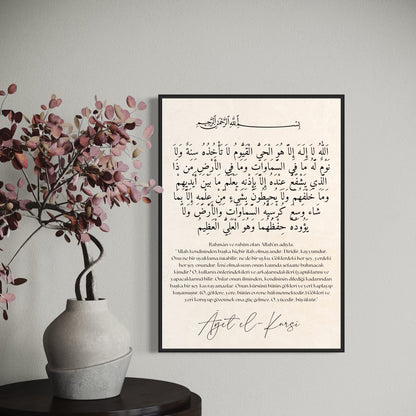 بِسْمِ اللّٰهِ الرَّحْمٰنِ الرَّحِيمِ
اَللّٰهُ لَا اِلٰهَ اِلَّا هُوَ الْحَيُّ الْقَيُّومُ لَا تَأْخُذُهُ سِنَةٌ وَلَا
نَوْمٌ لَهُ مَا فِي السَّمَاوَاتِ وَمَا فِي الْاَرْضِ مَنْ ذَا
الَّذِي يَشْفَعُ عِنْدَهُ اِلَّا بِاِذْنِهِ يَعْلَمُ مَا بَيْنَ اَيْدِيهِمْ
وَمَا خَلْفَهُمْ وَلَا يُحِيطُونَ بِشَيْءٍ مِنْ عِلْمِهِ اِلَّا بِمَا
شَاءَ وَسِعَ كُرْسِيُّهُ السَّمَاوَاتِ وَالْاَرْضَ وَلَا
يَؤُدُهُ حِفْظُهُمَا وَهُوَ الْعَلِيُّ الْعَظِيمُ
Rahmân ve rahîm olan Allah'ın adıyla.
"Allah kendisinden başka hiçbir ilah olmayandır. Diridir, kayyumdur.
Onu ne bir uyuklama tutabilir, ne de bir uyku. Göklerdeki her şey, yerdeki
her şey onundur. İzni olmaksızın onun katında şefaatte bulunacak
kimdir? O, kulların önlerindekileri ve arkalarındakileri (yaptıklarını ve
yapacaklarını) bilir. Onlar onun ilminden, kendisinin dilediği kadarından
başka bir şey kavrayamazlar. Onun kürsüsü bütün gökleri ve yeri kaplayıp
kuşatmıştır. (O, göklere, yere, bütün evrene hükmetmektedir.) Gökleri ve
yeri koruyup gözetmek ona güç gelmez. O, yücedir, büyüktür."
Ayet el-Kürsi